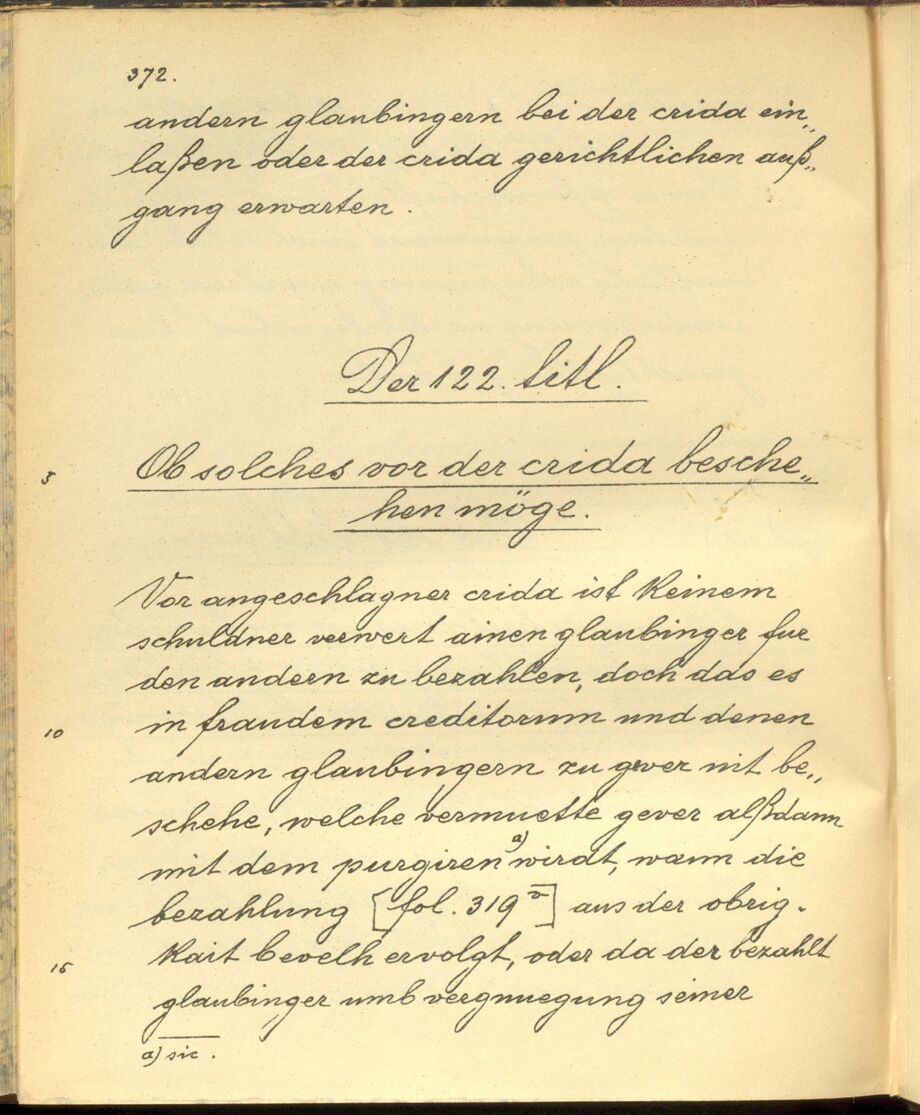 372.
andern glaubingern bei der crida ein„
laßen oder der crida gerichtlichen auß„
gang erwarten.
Der 122. titl.
5 Ob solches vor der crida besche„
hen möge.
Vor angeschlagner crida ist keinem
schuldner verwert ainen glaubinger fur
den andern zu bezahlen, doch das es
10 in fraudem creditorum und denen
andern glaubingern zu gever nit be„
schehe, welche vermuette gever alßdann
mit dem purgiren a) wirdt, wann die
bezahlung [fol. 319 v] aus der obrig-
15 kait bevelh ervolgt, oder da der bezahlt
glaubinger umb vergnuegung seiner
a) sic.